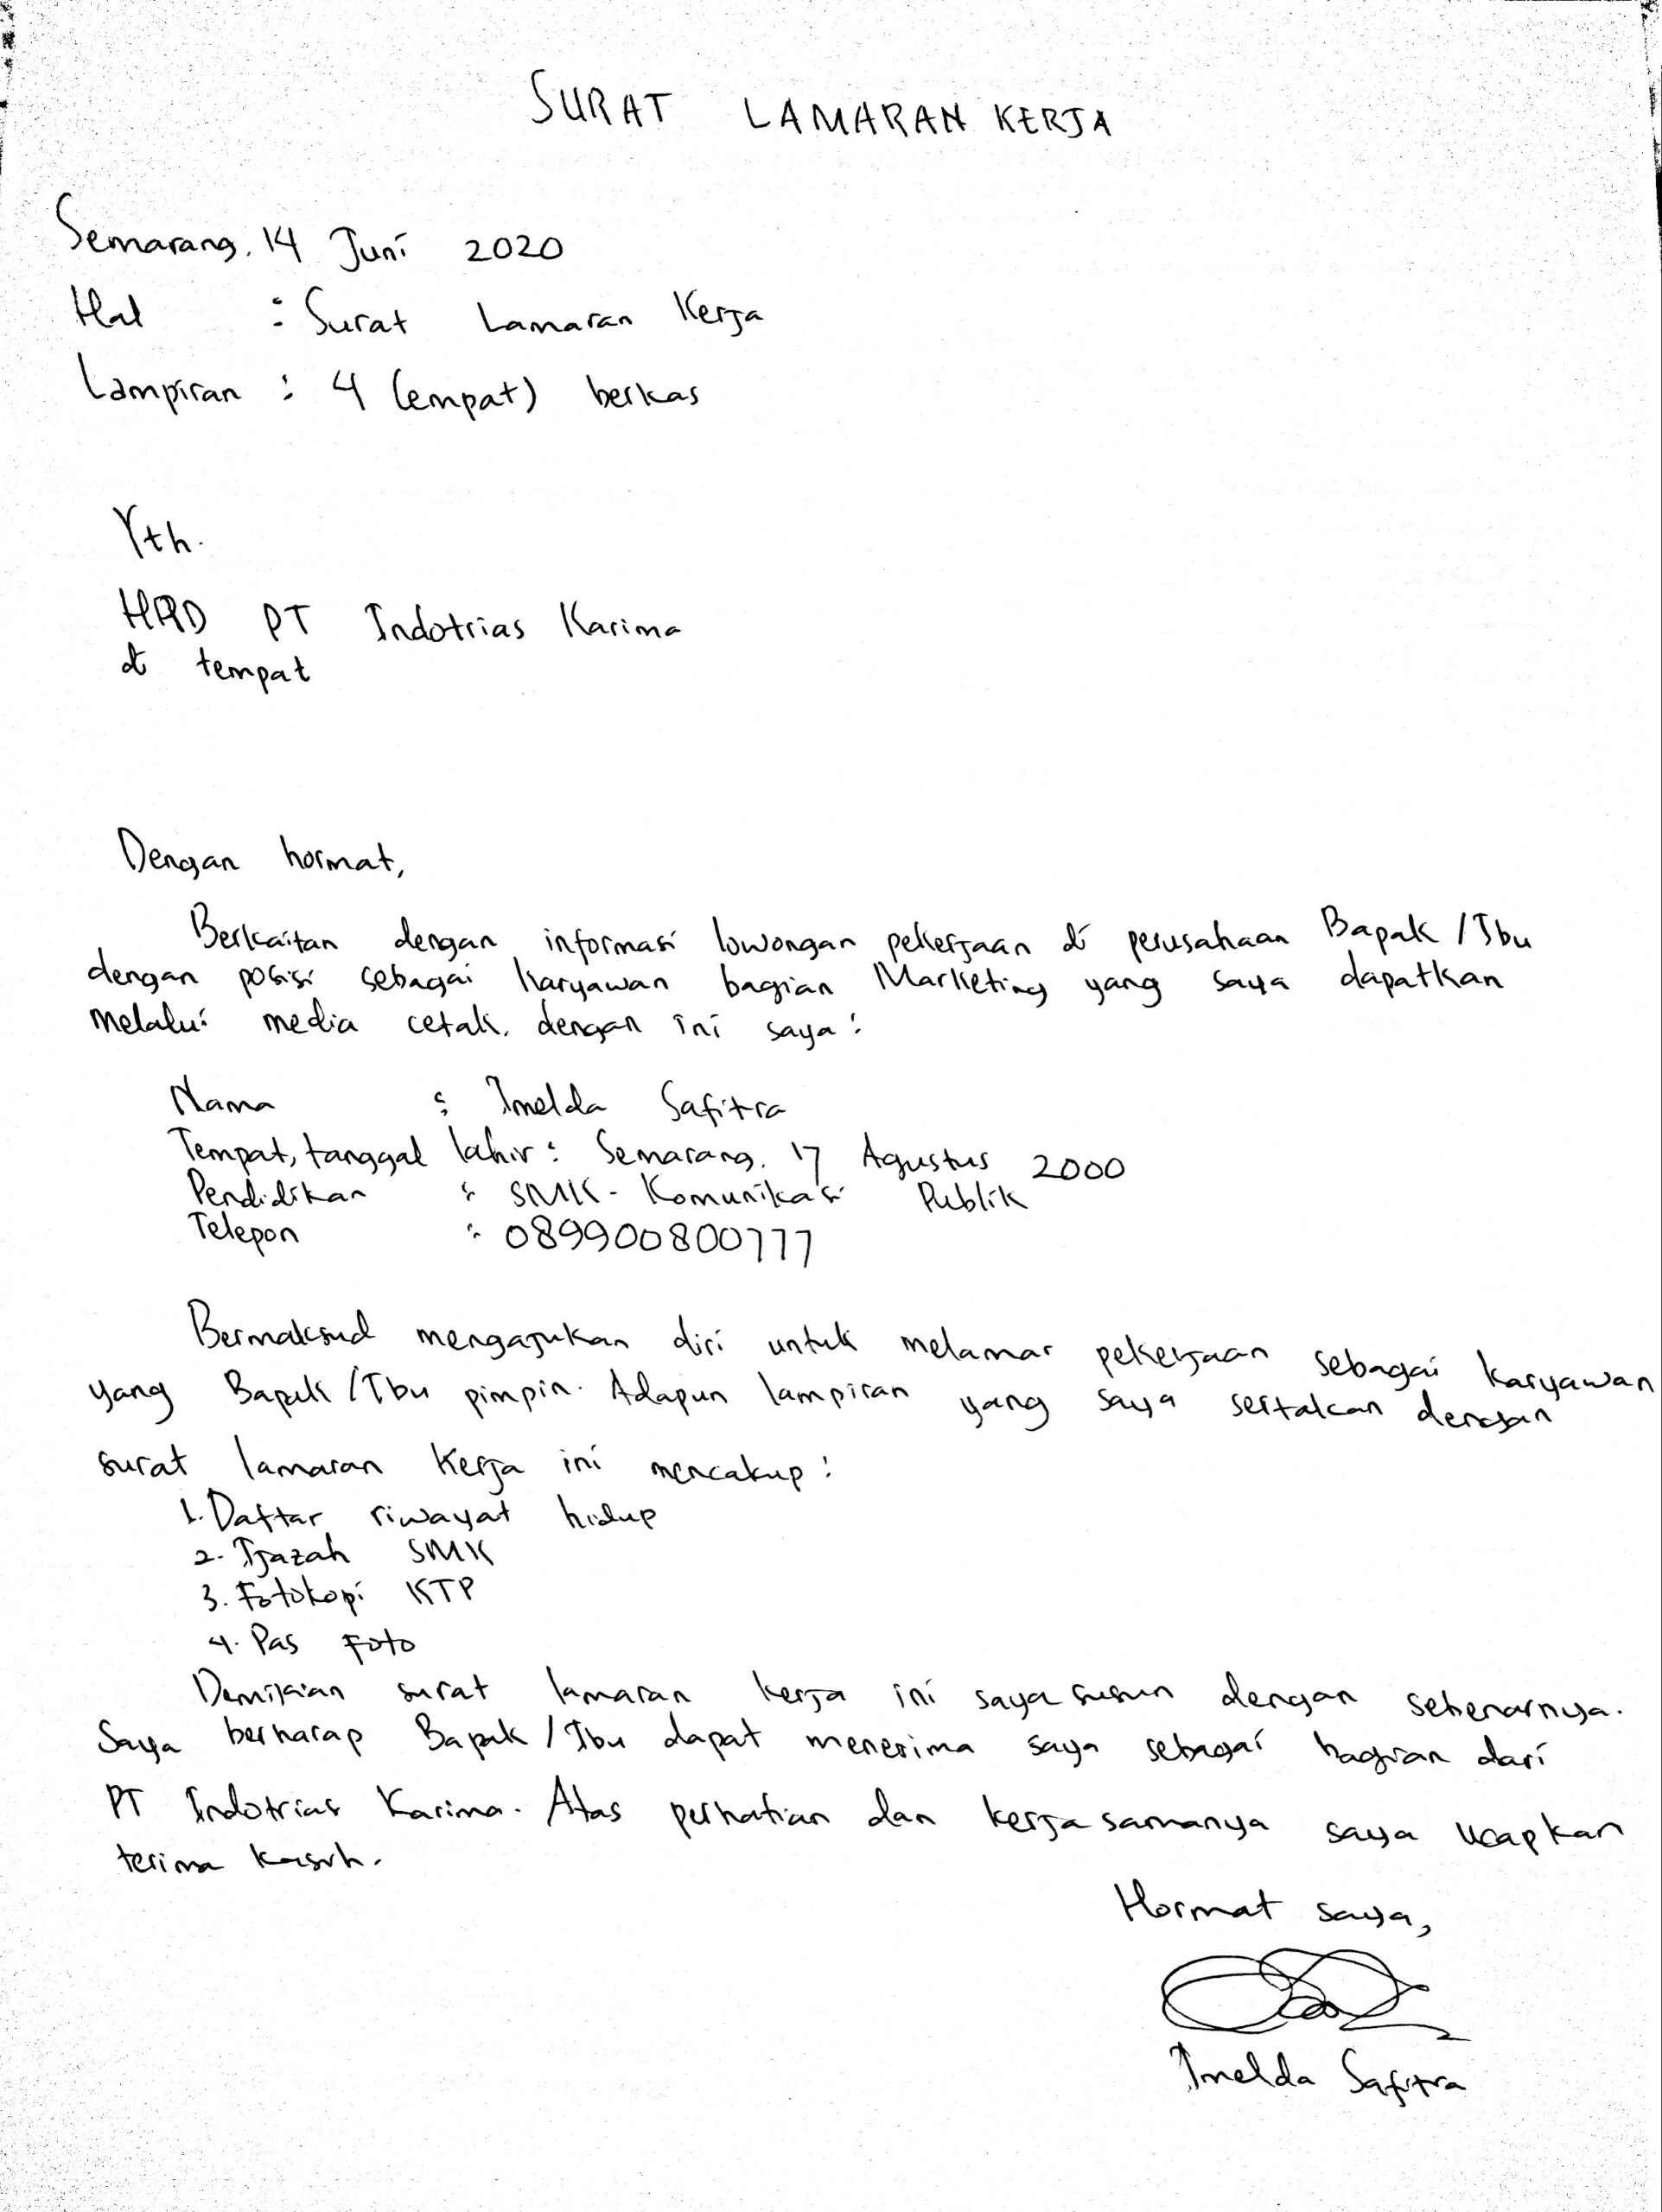 SURAT LAMARAN KERJA
Semarang, 14 Juni 2020
Hal : Surat Lamaran Kerja
Lampiran : 4 (empat) berkas
Yth.
HRD PT Indotrias Karima
di tempat
Dengan hormat,
Berkaitan dengan informasi lowongan pekerjaan di perusahaan Bapak/Ibu
dengan posisi sebagai karyawan bagian Marketing yang saya dapatkan
melalui media cetak, dengan ini saya:
Nama : Imelda Safitra
Tempat, tanggal lahir: Semarang, 17 Agustus 2000
Pendidikan : SMK - Komunikasi Publik
Telepon : 089900800777
Bermaksud mengajukan diri untuk melamar pekerjaan sebagai karyawan
yang Bapak/Ibu pimpin. Adapun lampiran yang saya sertakan dengan
surat lamaran kerja ini mencakup:
1. Daftar riwayat hidup
2. Ijazah SMK
3. Fotokopi KTP
4. Pas Foto
Demikian surat lamaran kerja ini saya susun dengan sebenarnya.
Saya berharap Bapak/Ibu dapat menerima saya sebagai bagian dari
PT Indotrias Karima. Atas perhatian dan kerja samanya saya ucapkan
terima kasih.
Hormat saya,
Imelda Safitra